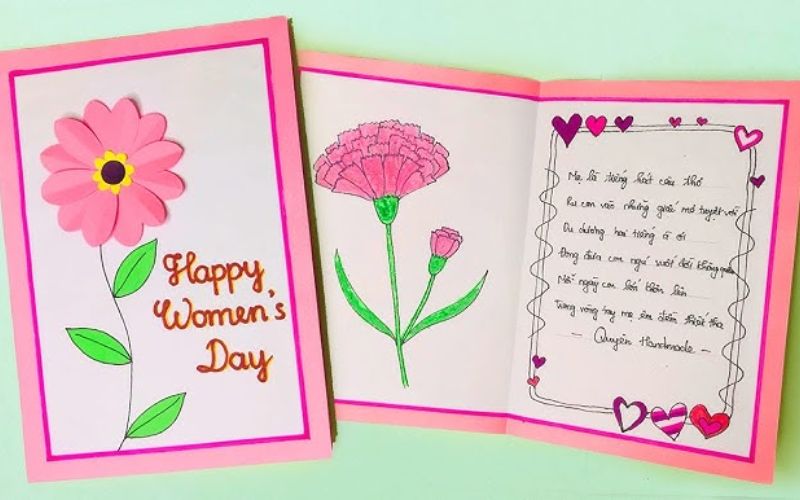 Happy
Women's
Day
Mẹ là tiếng hát câu thơ
Ru con vào những giấc mơ tuyệt vời
Du dương hai tiếng à ơi
Đong đưa con ngủ suốt đời không quên
Mỗi ngày con lớn khôn lên
Trong vòng tay mẹ êm đềm thiết tha
- Quyên Handmade -